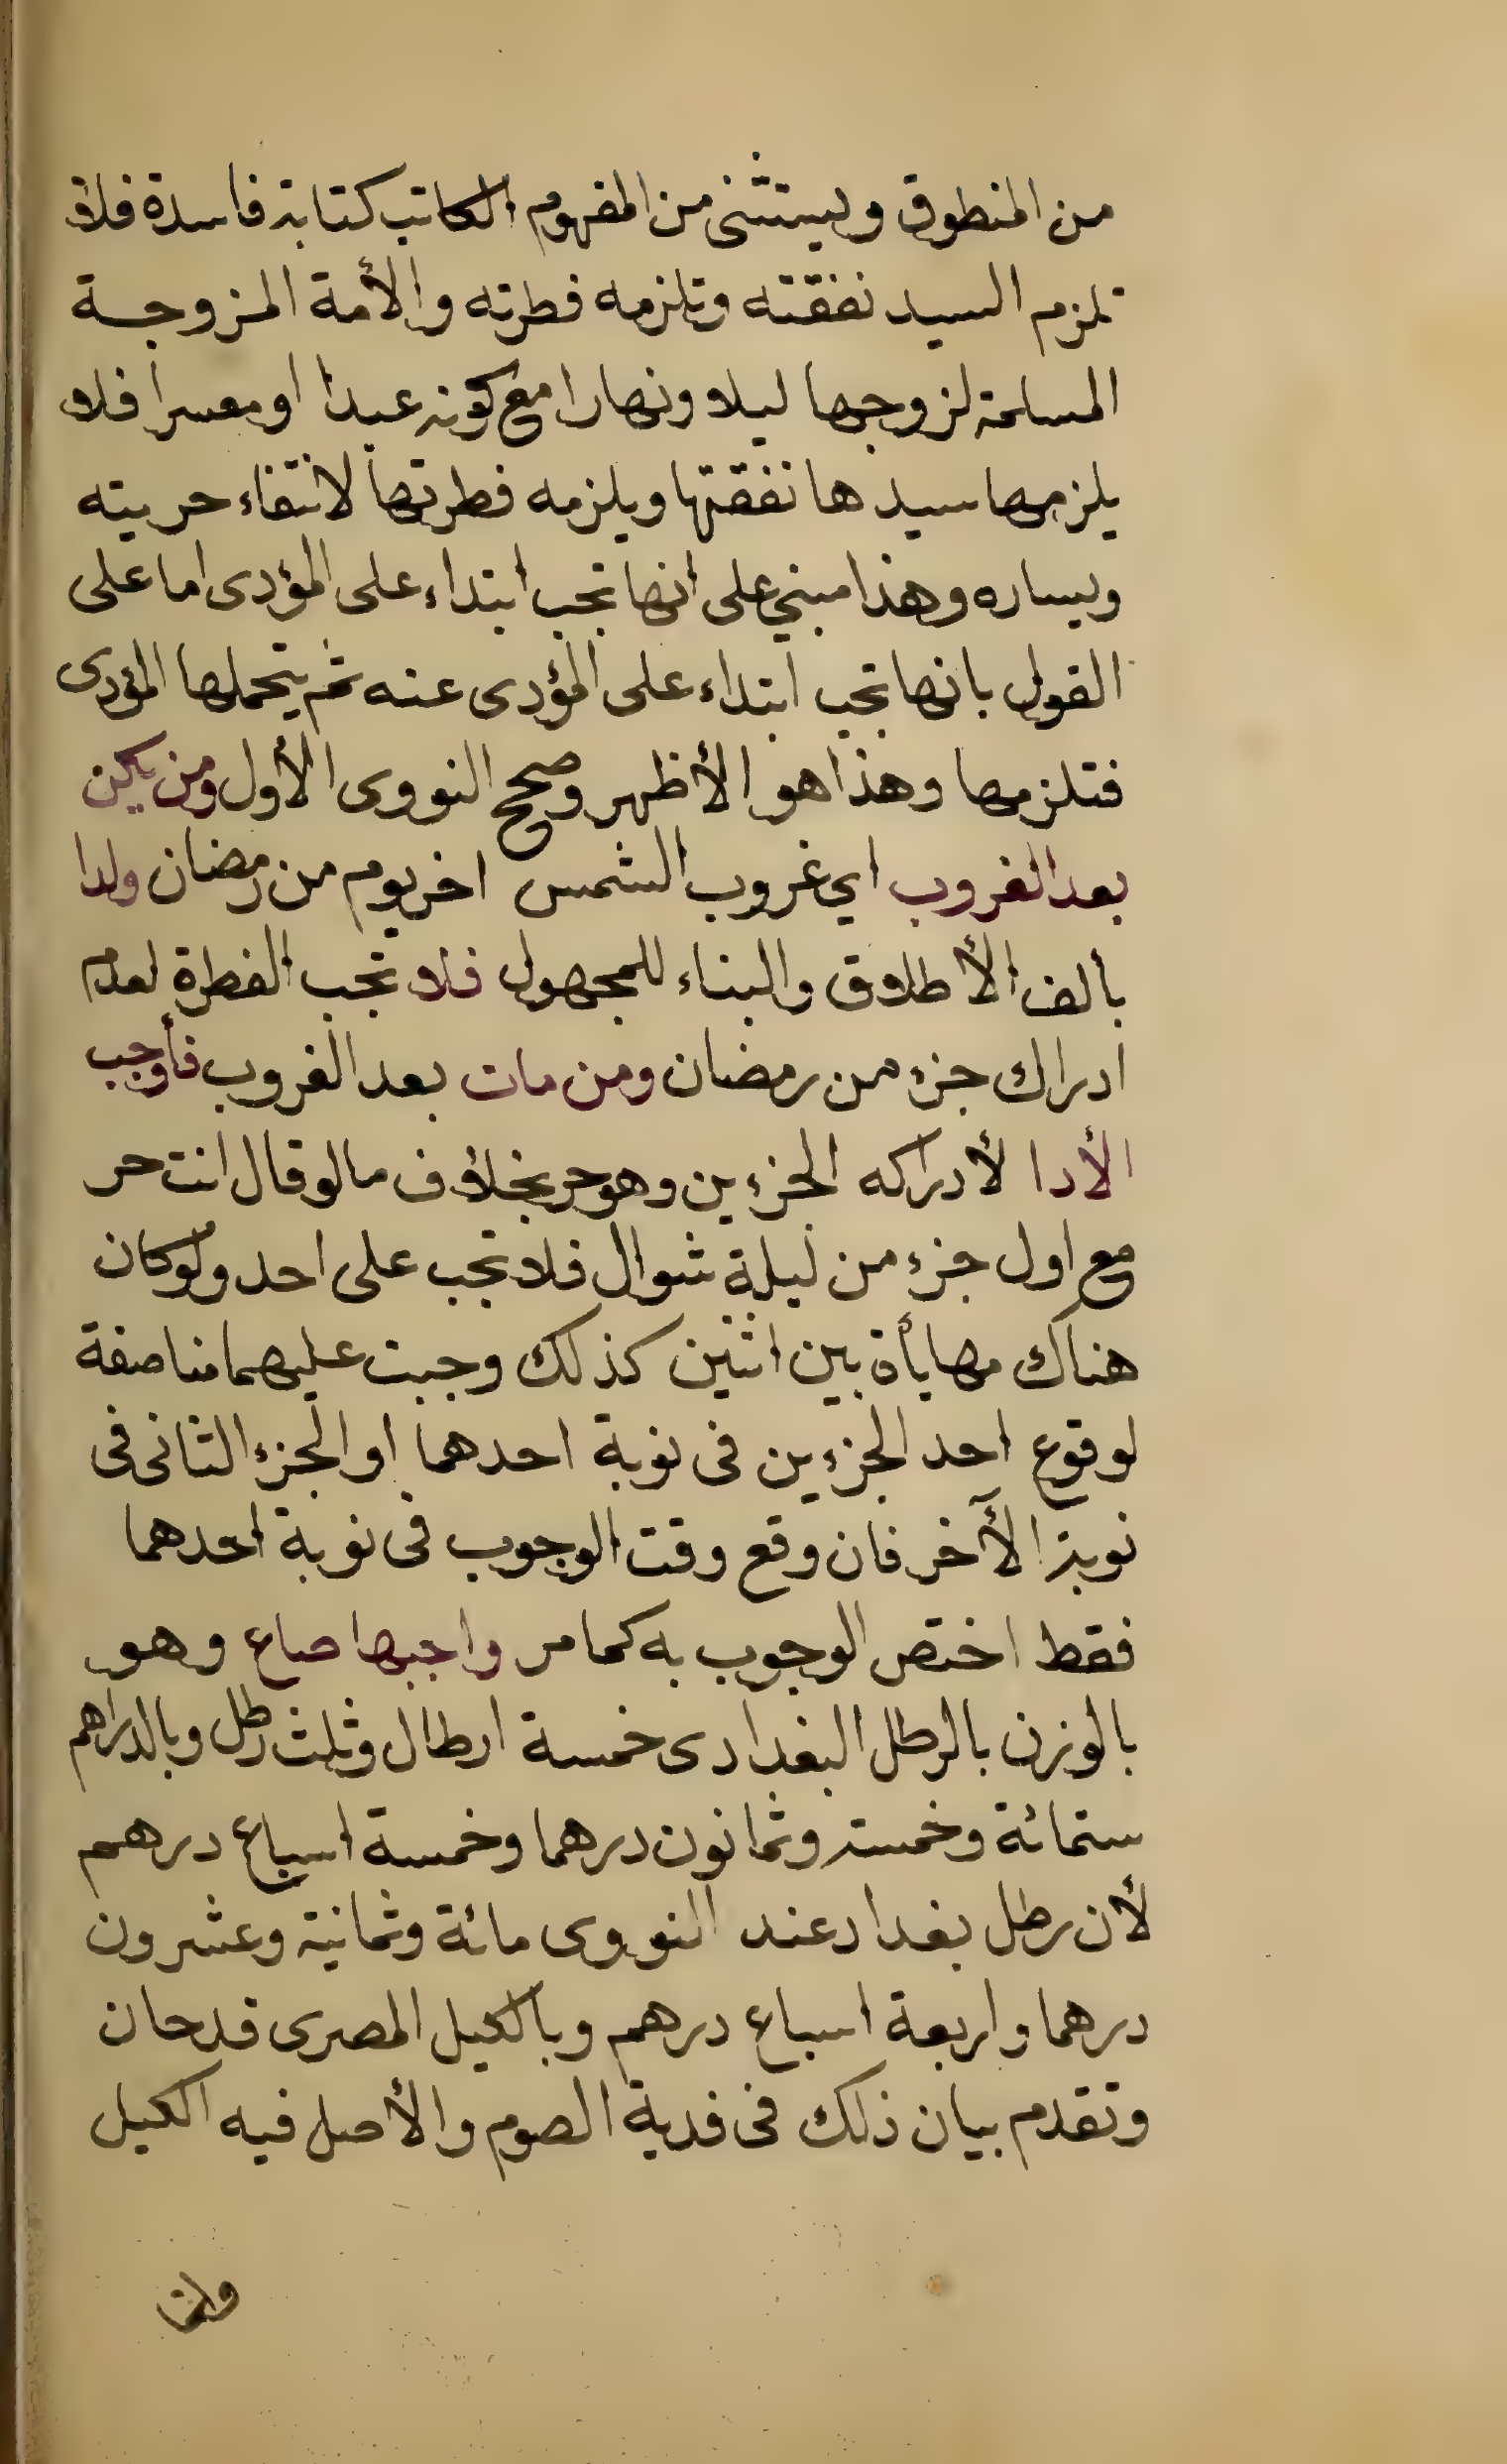 من المنطوق ويستثنى من المفهوم الكاتب كتابة فاسدة فلا
تلزم السيد نفقته وتلزمه فطرته والأمة المزوجة
المسلمة لزوجها ليلا ونهارا مع كونه عبدا او معسرا فلا
يلزمها سيدها نفقتها ويلزمه فطرتها لانتفاء حريته
ويساره وهذا مبني على انها تجب ابتداء على المؤدى اما على
القول بانها تجب ابتداء على المؤدى عنه ثم يتحملها المؤدى
فتلزمها وهذا هو الأظهر وصحح النووى الأول ومن يكن
بعد الغروب اي غروب الشمس اخر يوم من رمضان ولدا
بألف الأطلاق والبناء للمجهول فلا تجب الفطرة لعدم
ادراك جزء من رمضان ومن مات بعد الغروب فأوجب
الأدا لأدراكه الجزءين وهو حر بخلاف مالو قال انت حر
مع اول جزء من ليلة شوال فلا تجب على احد ولو كان
هناك مهايأة بين اثنين كذلك وجبت عليهما مناصفة
لوقوع احد الجزءين فى نوبة احدهما او الجزء الثانى فى
نوبة الآخر فان وقع وقت الوجوب فى نوبة احدهما
فقط اختص الوجوب به كما مر واجبها صاع وهو
بالوزن بالرطل البغدادى خمسة ارطال وثلث رطل وبالدراهم
ستمائة وخمسة وثمانون درهما وخمسة اسباع درهم
لأن رطل بغداد عند النووى مائة وثمانية وعشرون
درهما واربعة اسباع درهم وبالكيل المصرى قدحان
وتقدم بيان ذلك فى فدية الصوم والأصل فيه الكيل